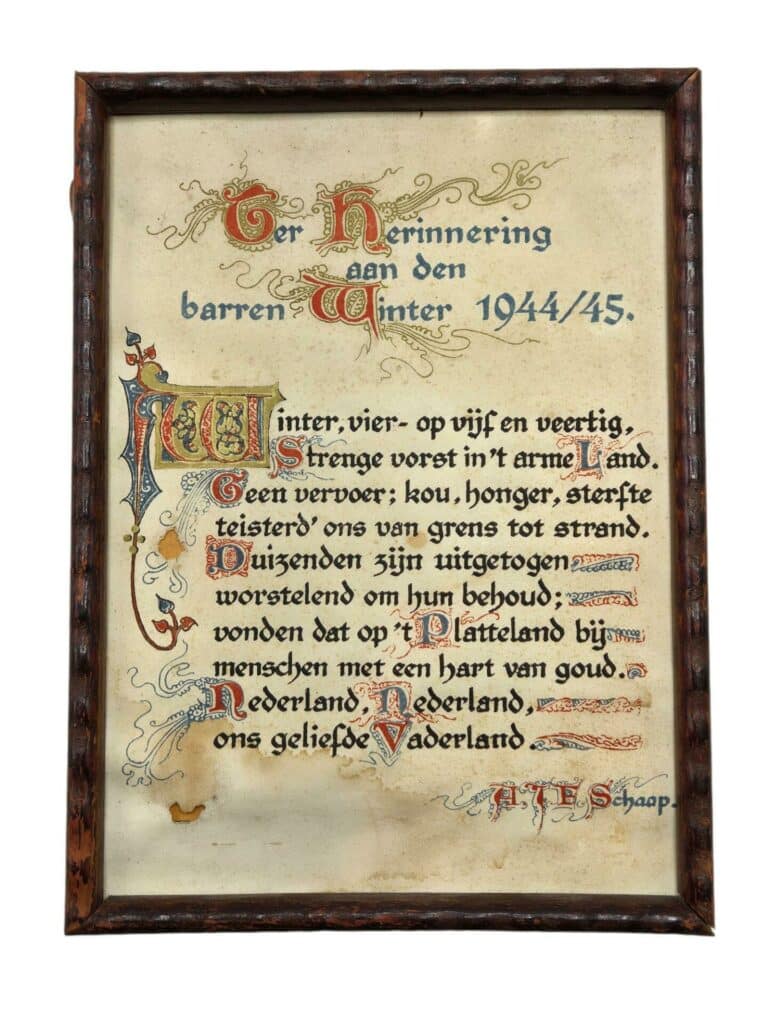 Ter Herinnering
aan den
barren Winter 1944/45.
Winter, vier- op vijf en veertig,
Strenge vorst in 't arme Land.
Geen vervoer; kou, honger, sterfte
teisterd' ons van grens tot strand.
Duizenden zijn uitgetogen
worstelend om hun behoud;
vonden dat op 't Platteland bij
menschen met een hart van goud.
Nederland, Nederland,
ons geliefde Vaderland.
A.J.F. Schaap.